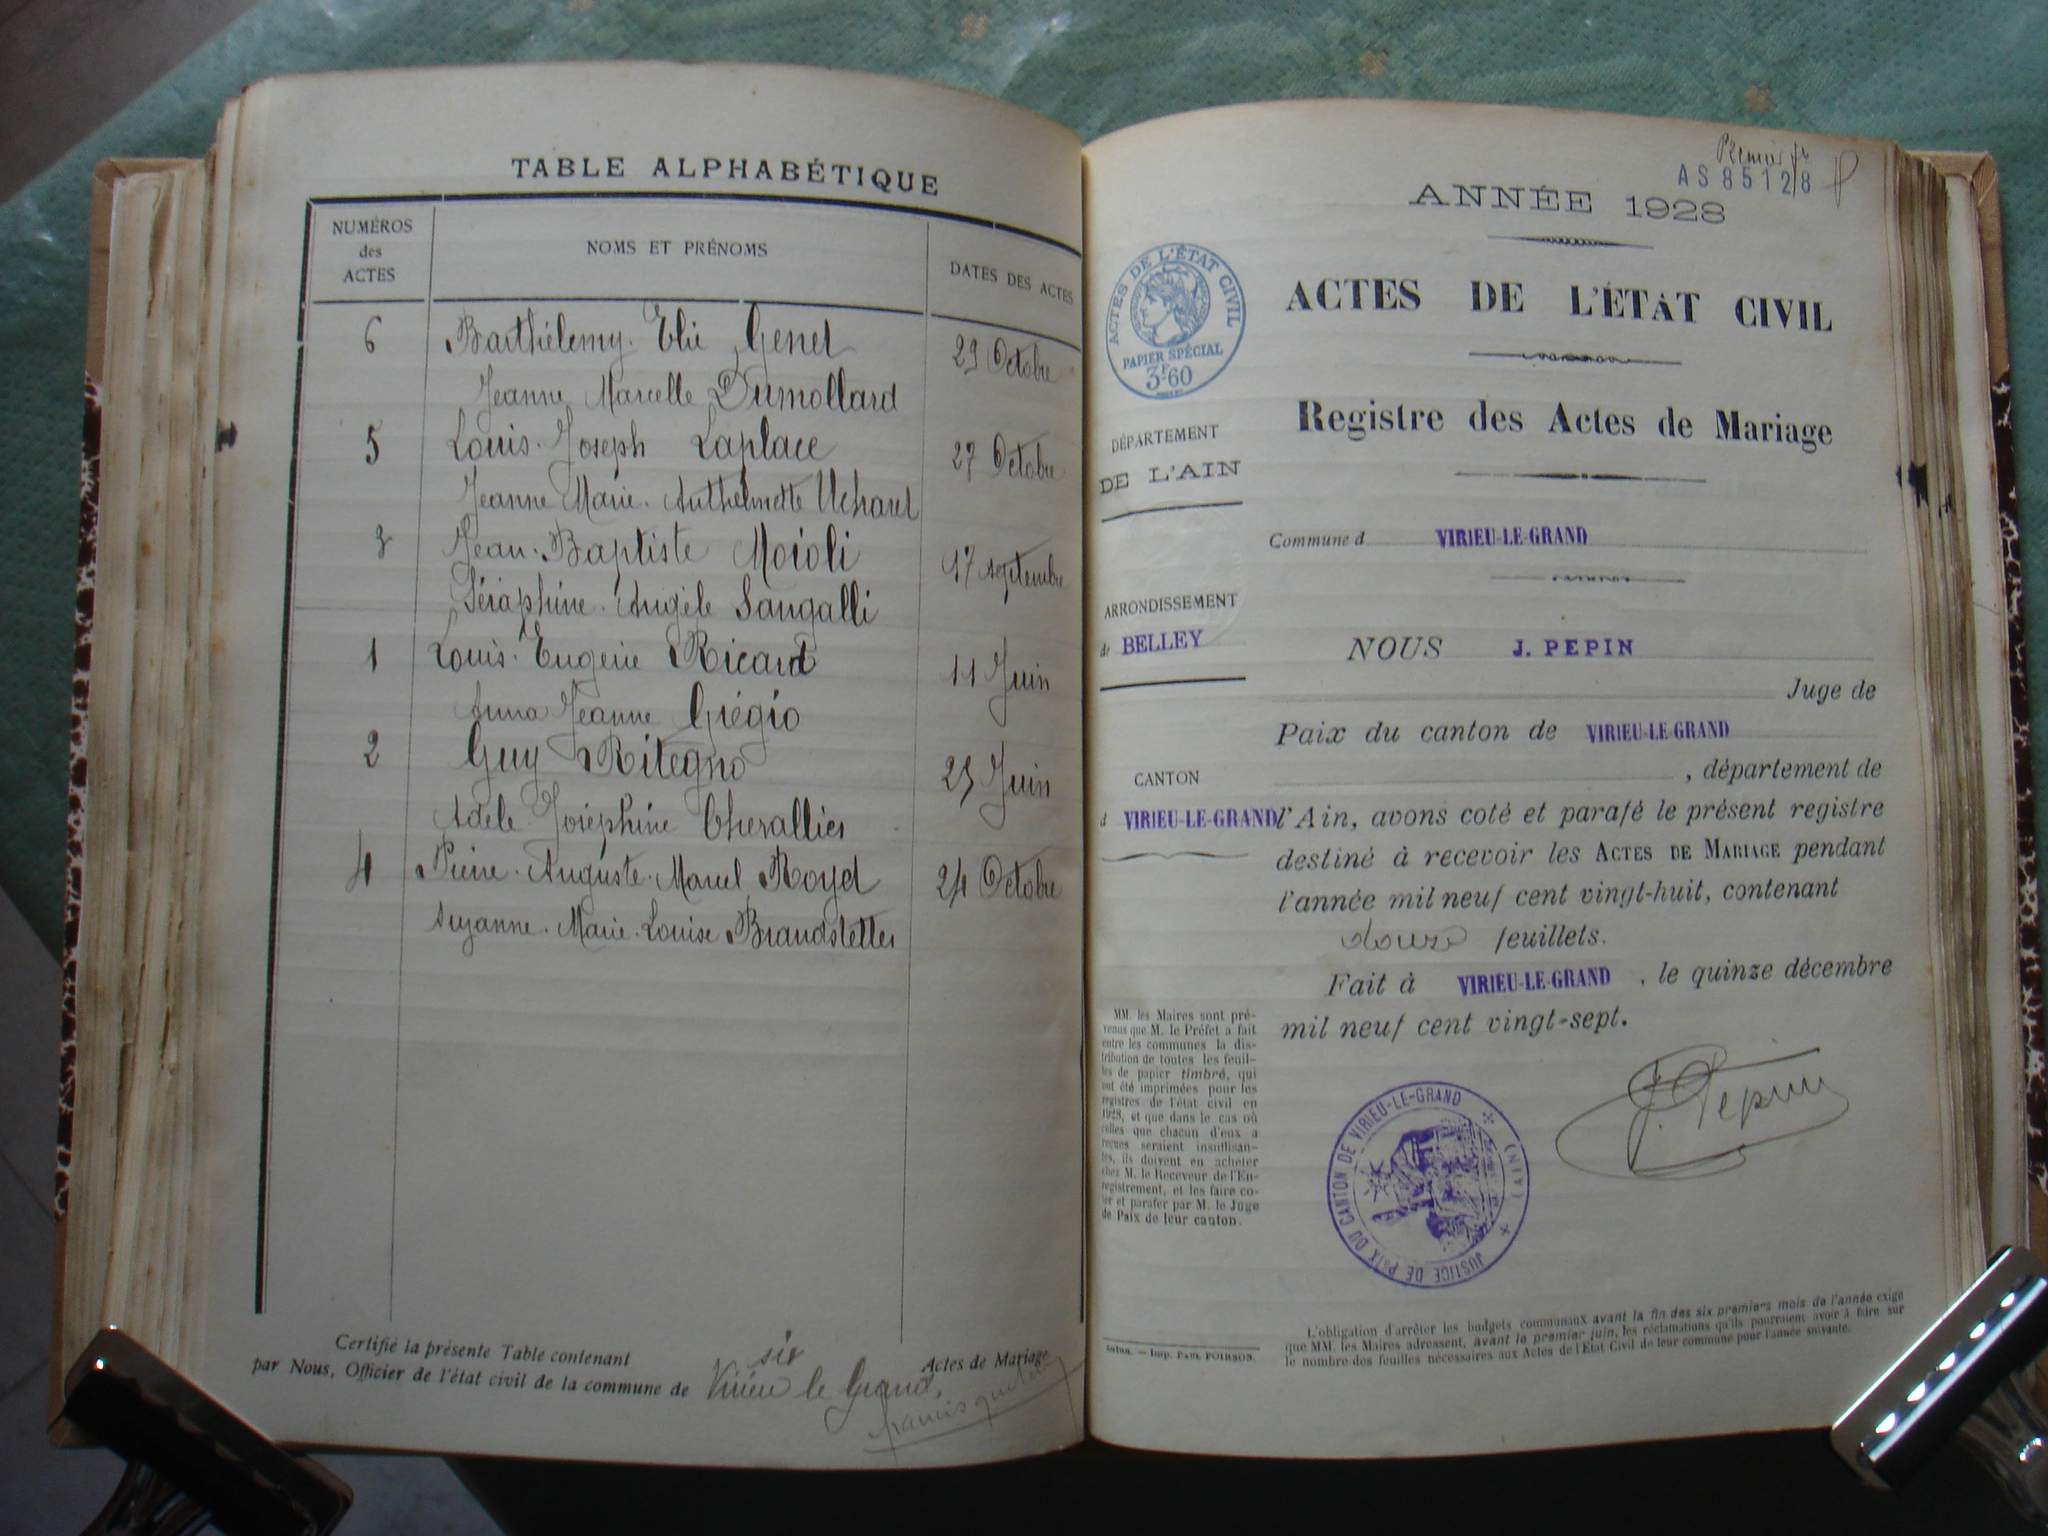 TABLE ALPHABÉTIQUE
NUMÉROS
des
ACTES
NOMS ET PRÉNOMS
DATES DES ACTES
6 Barthélemy. Elie Genet 29 Octobre
Jeanne Marcelle Dumollard
5 Louis. Joseph Laplace 27 Octobre
Jeanne Marie. Anthelmette Uchard
3 Jean-Baptiste Moioli 17 septembre
Séraphine. Angèle Sangalli
1 Louis. Eugène Ricard 11 Juin
Anna Jeanne Griégio
2 Guy Ritegno 25 Juin
Adèle Joséphine Chevallier
4 Pierre. Auguste. Marcel Royet 24 Octobre
Suzanne. Marie. Louise Brandstetter
Certifié la présente Table contenant six Actes de Mariage
par Nous, Officier de l'état civil de la commune de Virieu le Grand,
Premier
AS 85128
ANNÉE 1928
ACTES DE L'ÉTAT CIVIL
PAPIER SPÉCIAL
3F60
ACTES DE L'ÉTAT CIVIL
Registre des Actes de Mariage
DÉPARTEMENT
DE L'AIN
Commune d VIRIEU-LE-GRAND
ARRONDISSEMENT
de BELLEY
CANTON
d VIRIEU-LE-GRAND
NOUS J. PEPIN
Juge de
Paix du canton de VIRIEU-LE-GRAND
, département de
l'Ain, avons coté et parafé le présent registre
destiné à recevoir les ACTES DE MARIAGE pendant
l'année mil neuf cent vingt-huit, contenant
douze feuillets.
Fait à VIRIEU-LE-GRAND, le quinze décembre
mil neuf cent vingt-sept.
J. Pepin
MM. les Maires sont pré-
venus que M. le Préfet a fait
entre les communes la dis-
tribution de toutes les feuil-
les de papier timbré, qui
ont été imprimées pour les
registres de l'état civil en
1928, et que dans le cas où
celles que chacun d'eux a
reçues seraient insuffisan-
tes, ils doivent en acheter
chez M. le Receveur de l'En-
registrement, et les faire co-
ter et parafer par M. le Juge
de Paix de leur canton.
JUSTICE DE PAIX DU CANTON DE VIRIEU-LE-GRAND (AIN)
Imp. PAUL POIRSON.
L'obligation d'arrêter les budgets communaux avant la fin des six premiers mois de l'année exige
que MM. les Maires adressent, avant le premier juin, les réclamations qu'ils pourraient avoir à faire sur
le nombre des feuilles nécessaires aux Actes de l'État Civil de leur commune pour l'année suivante.